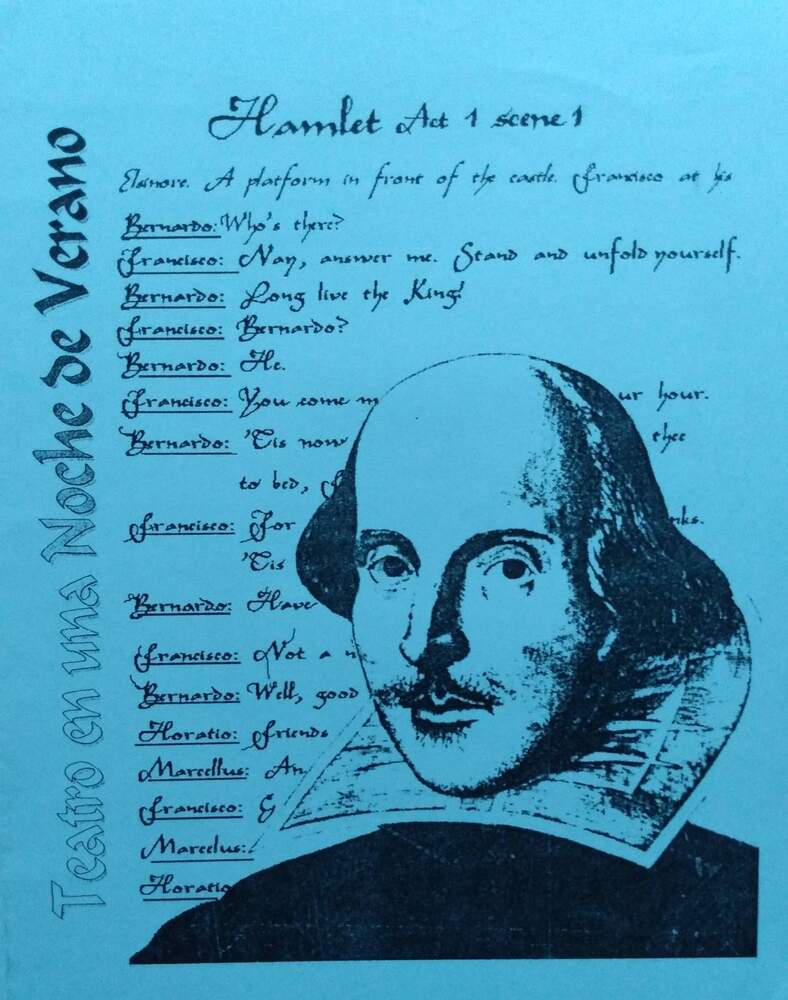 Teatro en una Noche de Verano
Hamlet Act 1 scene 1
Elsinore. A platform in front of the castle. Francisco at his
Bernardo: Who's there?
Francisco: Nay, answer me. Stand and unfold yourself.
Bernardo: Long live the King!
Francisco: Bernardo?
Bernardo: He.
Francisco: You come m ur hour.
Bernardo: 'Tis now thee
to bed, f
Francisco: For nks.
'Tis
Bernardo: Have
Francisco: Not a m
Bernardo: Well, good
Horatio: Friends
Marcellus: An
Francisco: G
Marcelus:
Horatio